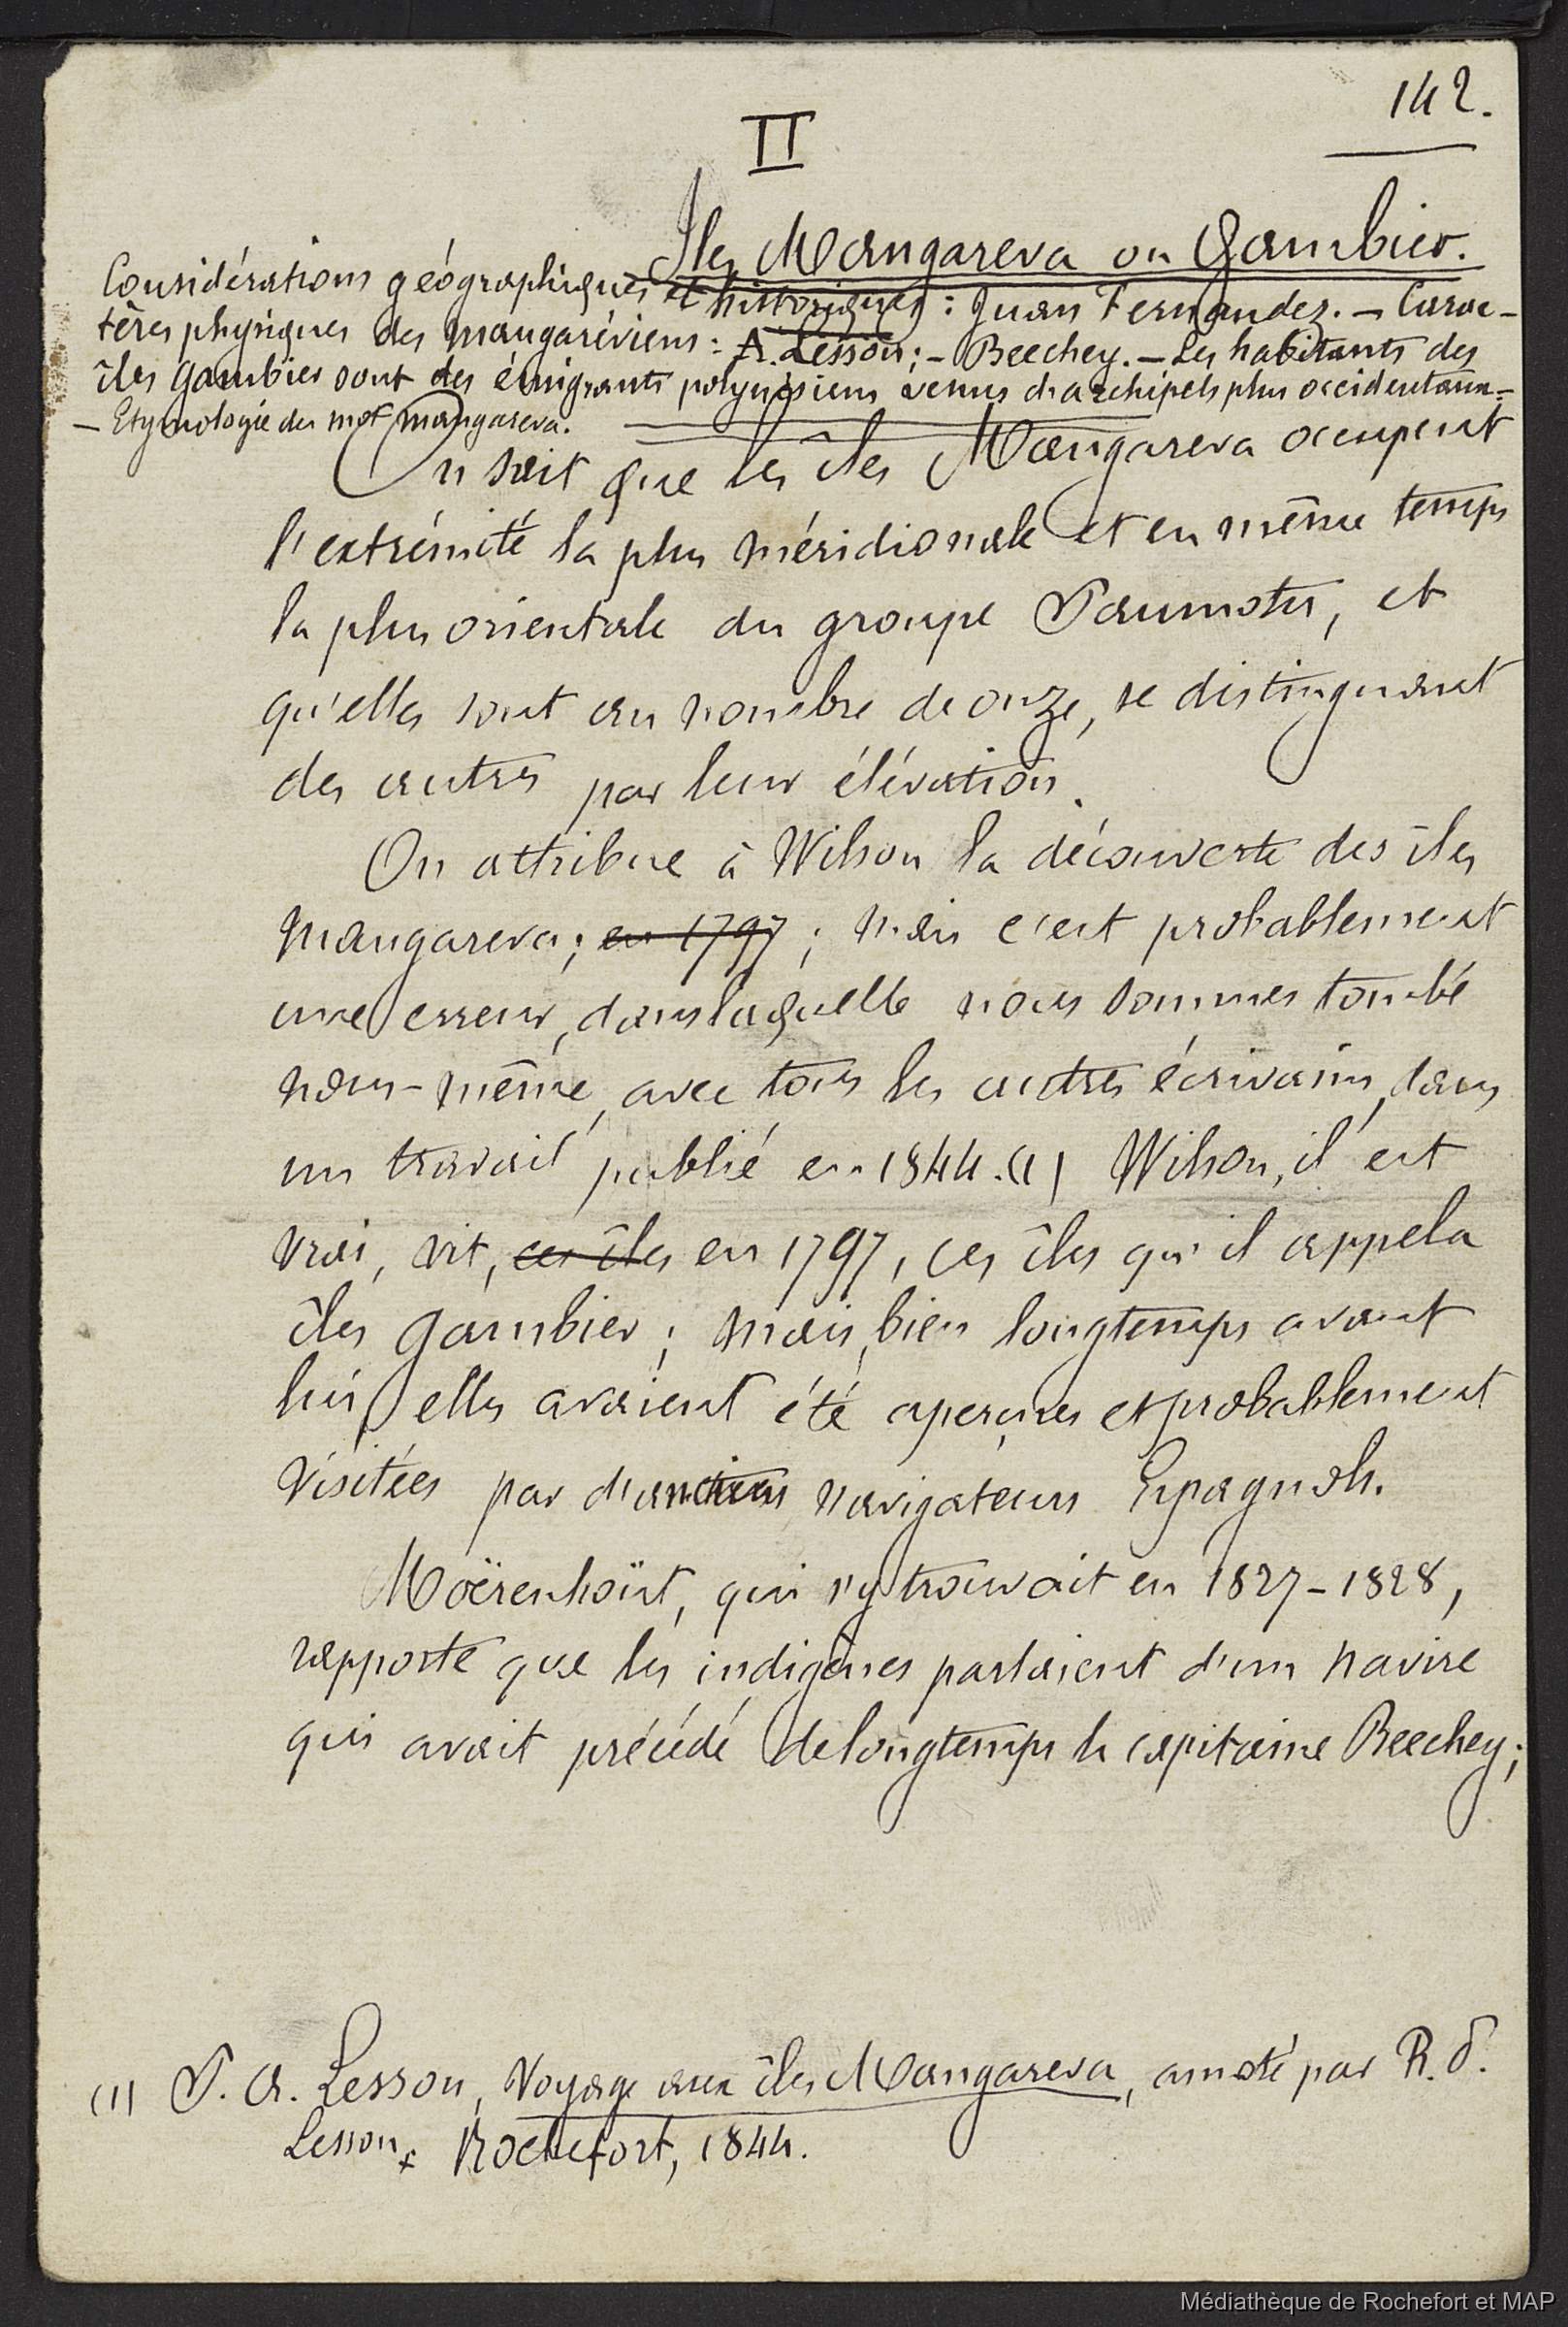 142.
II
Iles Mangareva ou Gambier.
Considérations géographiques et historiques : Juan Fernandez. — Carac-
tères physiques des mangaréviens : A. Lesson ; — Beechey. — Les habitants des
îles Gambier sont des émigrants polynésiens venus d'archipels plus occidentaux
— Etymologie du mot mangareva.
On sait que les îles Mangareva occupent
l'extrémité la plus méridionale et en même temps
la plus orientale du groupe Paumotu, et
qu'elles sont au nombre de onze, se distinguant
des autres par leur élévation.
On attribue à Wilson la découverte des îles
mangareva ; en 1797 ; mais c'est probablement
une erreur, dans laquelle nous sommes tombé
nous-même, avec tous les autres écrivains, dans
un travail publié en 1844. (1) Wilson, il est
vrai, vit, ces îles en 1797, ces îles qu'il appela
îles Gambier ; mais, bien longtemps avant
lui, elles avaient été aperçues et probablement
visitées par d'anciens navigateurs Espagnols.
Moërenhoüt, qui s'y trouvait en 1827-1828,
rapporte que les indigènes parlaient d'un navire
qui avait précédé de longtemps le capitaine Beechey ;
(1) P. A. Lesson, Voyage aux îles Mangareva, annoté par R. P.
Lesson, Rochefort, 1844.
Médiathèque de Rochefort et MAP